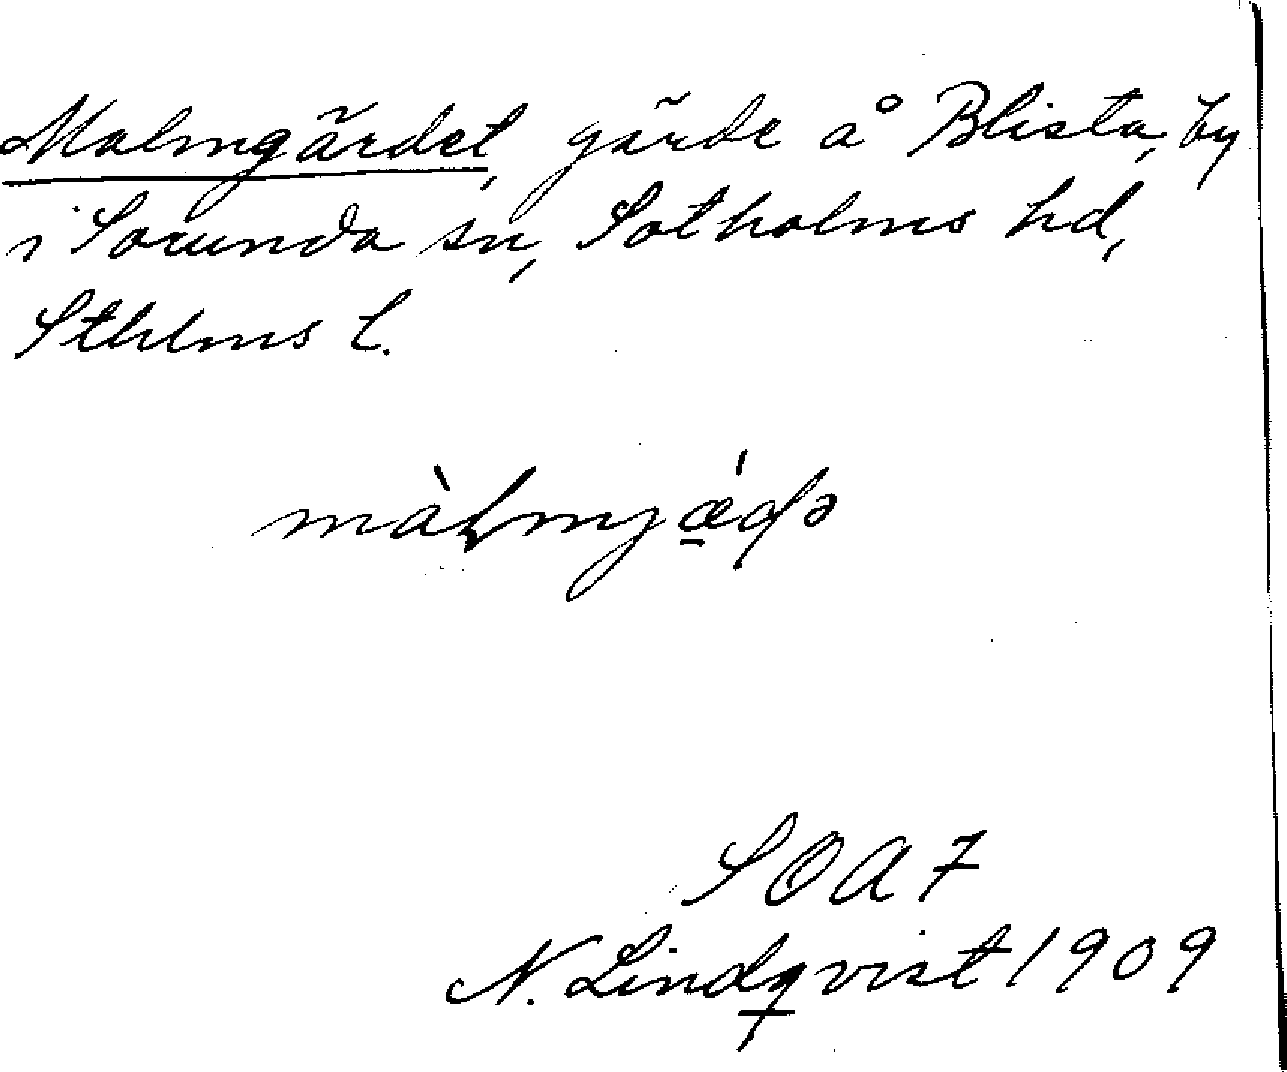 Malmgärdet, gärde å Blista, by
i Sorunda sn, Sotholms hd,
Sthlms l.
SOA 7
N. Lindqvist 1909